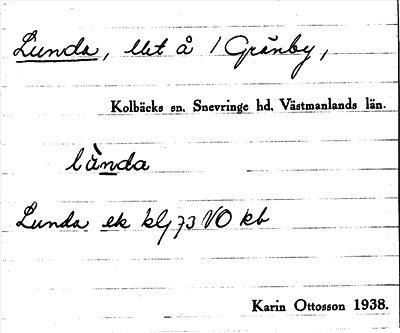 Lunda, Ut å / Gränby,
Kolbäcks sn. Snevringe hd. Västmanlands län.
lùnda
Lunda ek klj 73 VO kb
Karin Ottosson 1938.